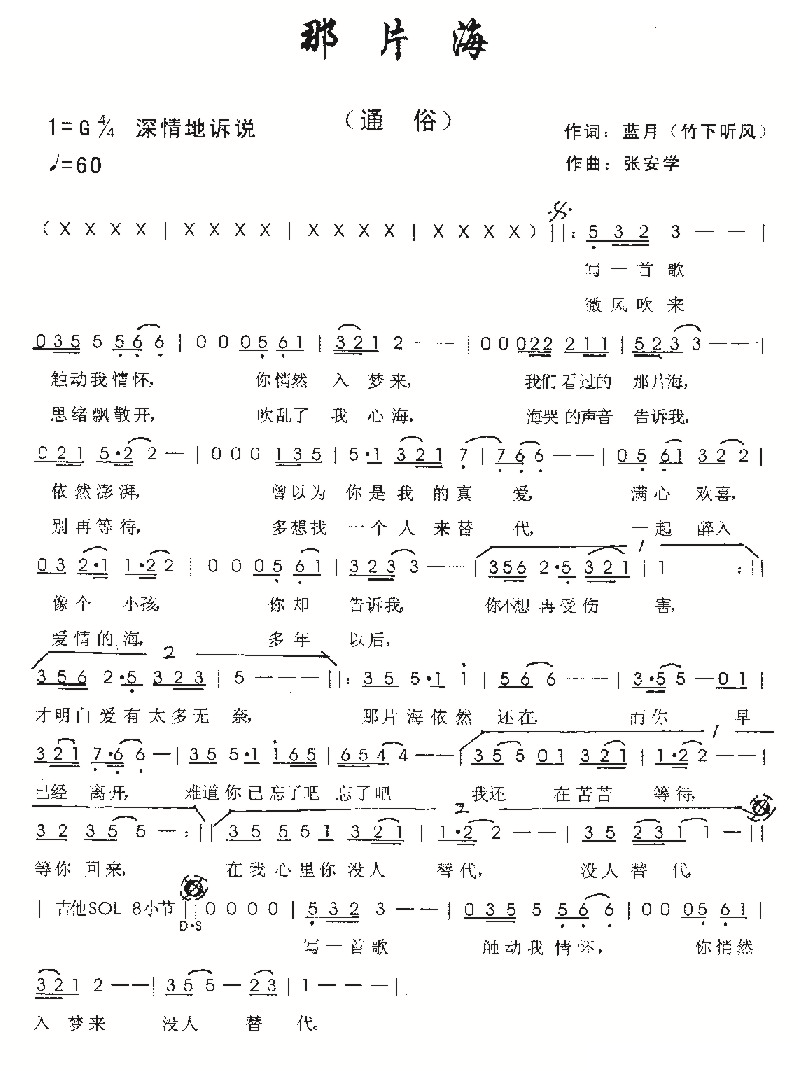 那片海
（通 俗）
1=G 4/4 深情地诉说
作词：蓝月（竹下听风）
♩=60
作曲：张安学
（X X X X | X X X X | X X X X | X X X X）||: 5 3 2 3 — — |
写一首歌
微风吹来
0 3 5 5 5 6 6 | 0 0 0 5 6 1 | 3 2 1 2 - - | 0 0 0 2 2 2 1 1 | 5 2 3 3 — — |
触动我情怀, 你悄然 入 梦来, 我们看过的 那片海,
思绪飘散开, 吹乱了 我 心海, 海哭的声音 告诉我,
0 2 1 5·2 2 — | 0 0 0 1 3 5 | 5·1 3 2 1 7 | 7 6 6 — — | 0 5 6 1 3 2 2 |
依然澎湃, 曾以为 你是我 的真 爱, 满心 欢喜,
别再等待, 多想找 一个人 来替 代, 一起 醉入
0 3 2·1 1·2 2 | 0 0 0 5 6 1 | 3 2 3 3 — — | 3 5 6 2·5 3 2 1 | 1 :||
1
像个 小孩, 你却 告诉我, 你不想 再受伤 害,
爱情的海, 多年 以后,
2
3 5 6 2·5 3 2 3 | 5 — — — ||: 3 5 5 5·1 | 5 6 6 — — | 3·5 5 — 0 1 |
才明白 爱有太多无 奈, 那片海依然 还在, 而你 早
1
3 2 1 7·6 6 — | 3 5 5·1 1 6 5 | 6 5 4 4 — — | 3 5 5 0 1 3 2 1 | 1·2 2 — — |
已经 离开, 难道你已忘了吧 忘了吧 我还 在苦苦 等待,
2
3 2 3 5 5 — :|| 3 5 5 5 1 3 2 1 | 1·2 2 — — | 3 5 2 3 1 1 — — ||
等你 回来, 在我心里你没人 替代, 没人替 代,
| 吉他SOL 8小节 || 0 0 0 0 | 5 3 2 3 — — | 0 3 5 5 5 6 6 | 0 0 0 5 6 1 |
D·S
写一首歌 触动我情怀, 你悄然
3 2 1 2 — — | 3 5 5 — 2 3 | 1 — — — |
入 梦来 没人 替 代。